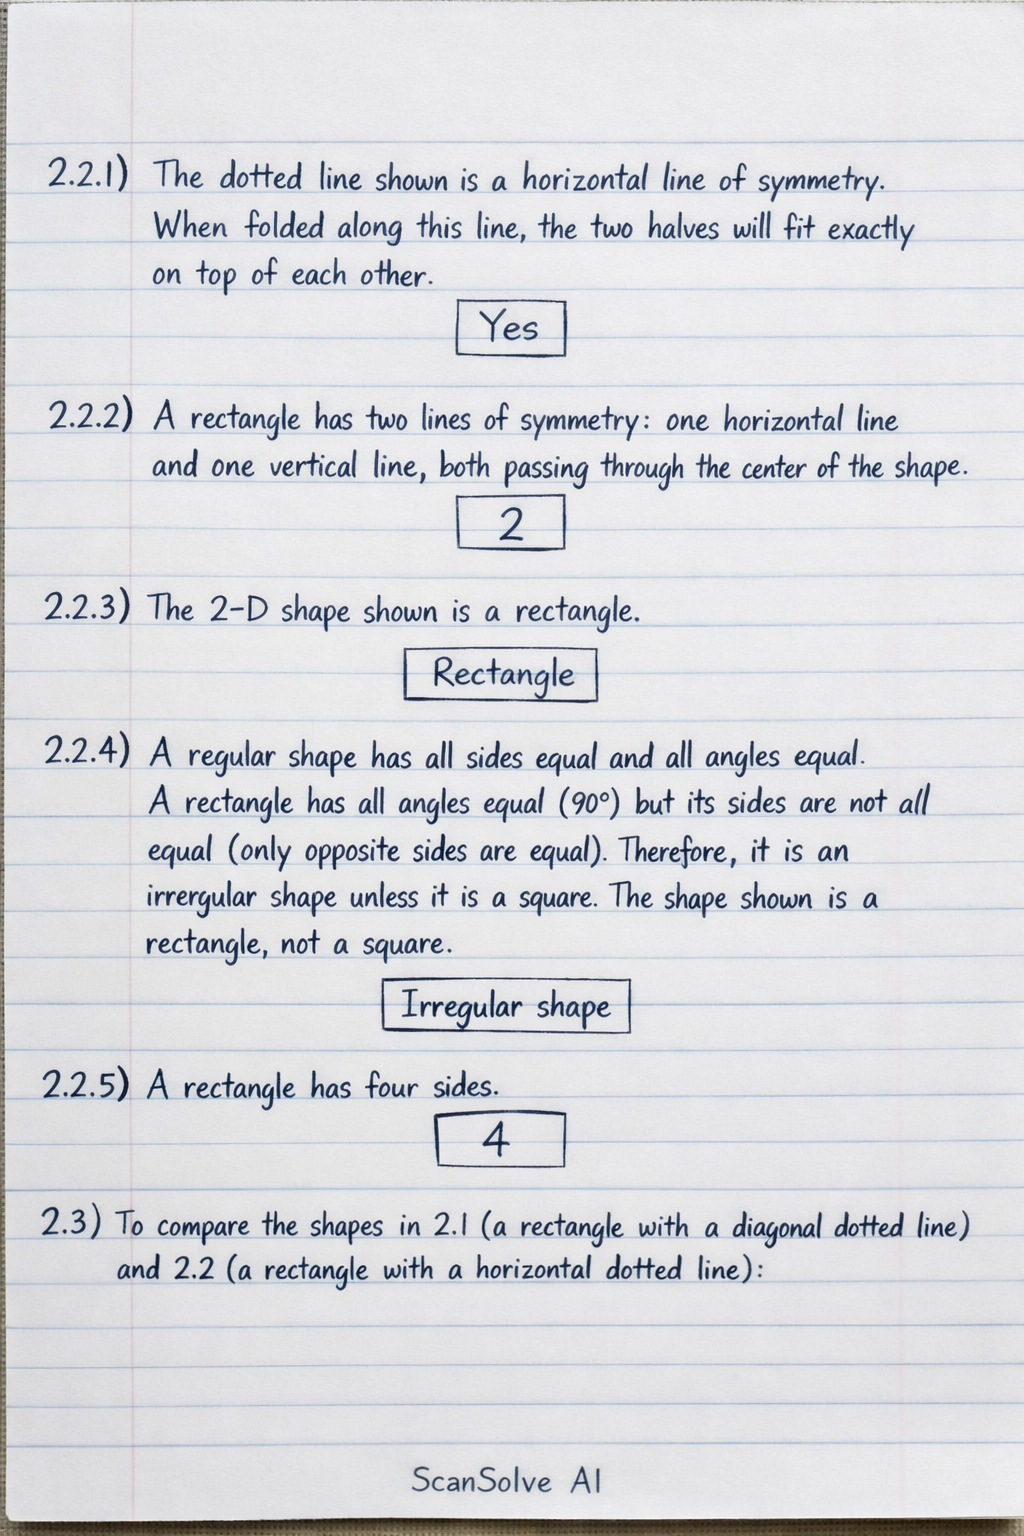 2.2.1) The dotted line shown is a horizontal line of symmetry.
When folded along this line, the two halves will fit exactly
on top of each other.
Yes
2.2.2) A rectangle has two lines of symmetry: one horizontal line
and one vertical line, both passing through the center of the shape.
2
2.2.3) The 2-D shape shown is a rectangle.
Rectangle
2.2.4) A regular shape has all sides equal and all angles equal.
A rectangle has all angles equal (90°) but its sides are not all
equal (only opposite sides are equal). Therefore, it is an
irrergular shape unless it is a square. The shape shown is a
rectangle, not a square.
Irregular shape
2.2.5) A rectangle has four sides.
4
2.3) To compare the shapes in 2.1 (a rectangle with a diagonal dotted line)
and 2.2 (a rectangle with a horizontal dotted line):
ScanSolve AI